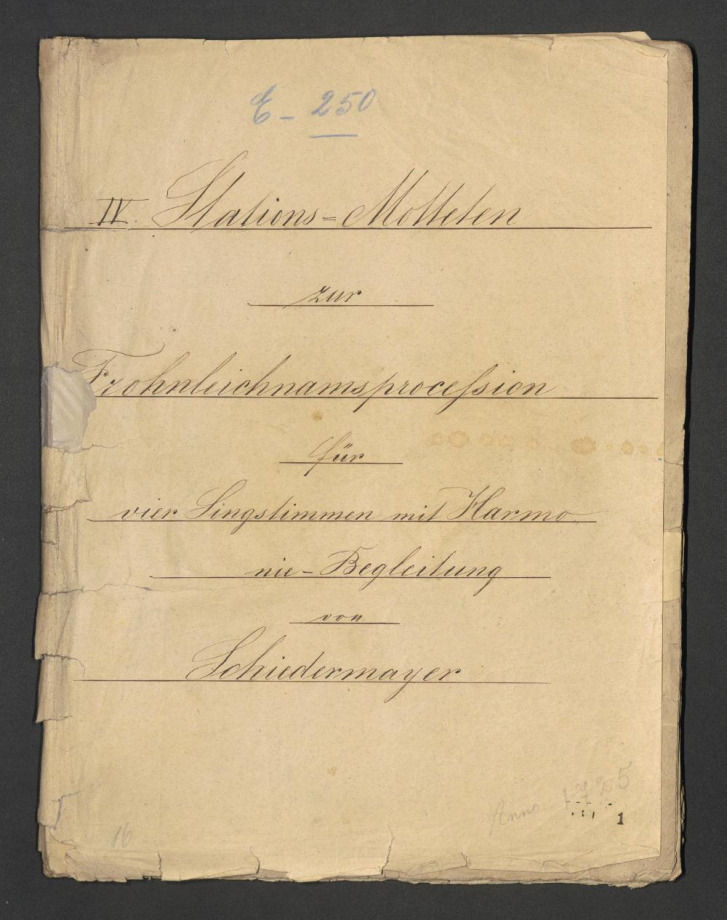 E – 250
IV. Stations=Motteten
zur
Frohnleichnamsprocession
für
vier Singstimmen mit Harmo
nie=Begleitung
von
Schiedermayer
Anno 1725
1
16